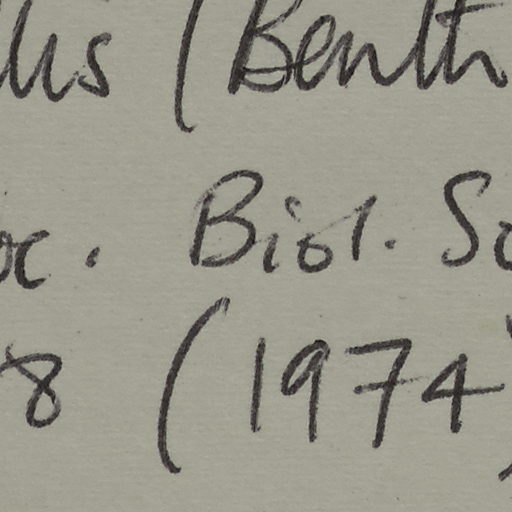 lis (Benth
oc. Biol. So
8 (1974)